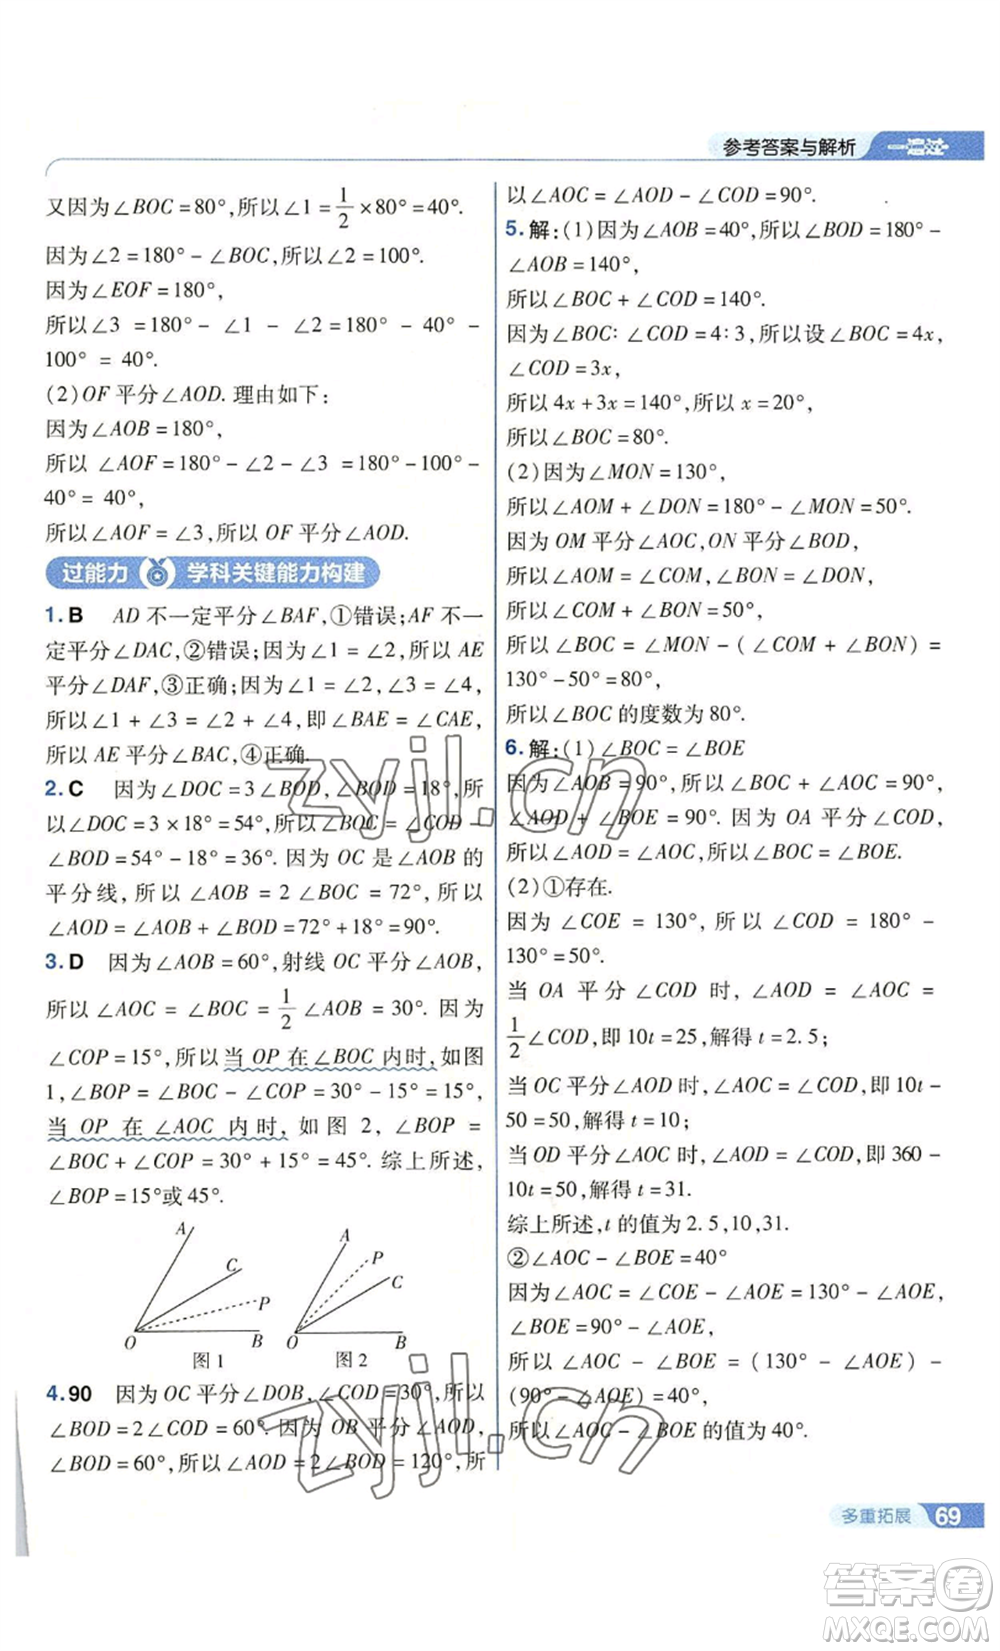 参考答案与解析 一遍过
又因为∠BOC=80°,所以∠1=1/2×80°=40°.
因为∠2=180°-∠BOC,所以∠2=100°.
因为∠EOF=180°,
所以∠3 =180°- ∠1 - ∠2 =180° - 40° -
100° = 40°.
(2)OF平分∠AOD.理由如下:
因为∠AOB=180°,
所以∠AOF=180°-∠2-∠3 =180°-100°-
40° = 40°,
所以∠AOF=∠3,所以OF平分∠AOD.
过能力 学科关键能力构建
1.B AD不一定平分∠BAF,①错误;AF不一
定平分∠DAC,②错误;因为∠1=∠2,所以AE
平分∠DAF,③正确;因为∠1=∠2,∠3=∠4,
所以∠1+∠3=∠2+∠4,即∠BAE=∠CAE,
所以AE平分∠BAC,④正确.
2.C 因为∠DOC=3∠BOD,∠BOD=18°,所
以∠DOC=3×18°=54°,所以∠BOC=∠COD-
∠BOD=54°-18°=36°.因为OC是∠AOB的
平分线,所以∠AOB=2∠BOC=72°,所以
∠AOD=∠AOB+∠BOD=72°+18°=90°.
3.D 因为∠AOB=60°,射线OC平分∠AOB,
所以∠AOC=∠BOC=1/2∠AOB=30°.因为
∠COP=15°,所以当OP在∠BOC内时,如图
1,∠BOP=∠BOC-∠COP=30°-15°=15°,
当OP在∠AOC内时,如图2,∠BOP=
∠BOC+∠COP=30°+15°=45°.综上所述,
∠BOP=15°或45°.
A
C
P
O B
图1
A
P
C
O B
图2
4.90 因为OC平分∠DOB,∠COD=30°,所以
∠BOD=2∠COD=60°.因为OB平分∠AOD,
∠BOD=60°,所以∠AOD=2∠BOD=120°,所
以∠AOC=∠AOD-∠COD=90°.
5.解:(1)因为∠AOB=40°,所以∠BOD=180°-
∠AOB=140°,
所以∠BOC+∠COD=140°.
因为∠BOC:∠COD=4:3,所以设∠BOC=4x,
∠COD=3x,
所以4x+3x=140°,所以x=20°,
所以∠BOC=80°.
(2)因为∠MON=130°,
所以∠AOM+∠DON=180°-∠MON=50°.
因为OM平分∠AOC,ON平分∠BOD,
所以∠AOM=∠COM,∠BON=∠DON,
所以∠COM+∠BON=50°,
所以∠BOC=∠MON-(∠COM+∠BON)=
130°-50°=80°,
所以∠BOC的度数为80°.
6.解:(1)∠BOC=∠BOE
因为∠AOB=90°,所以∠BOC+∠AOC=90°,
∠AOD+∠BOE=90°.因为OA平分∠COD,
所以∠AOD=∠AOC,所以∠BOC=∠BOE.
(2)①存在.
因为∠COE=130°,所以∠COD=180°-
130°=50°.
当OA平分∠COD时,∠AOD=∠AOC=
1/2∠COD,即10t=25,解得t=2.5;
当OC平分∠AOD时,∠AOC=∠COD,即10t-
50=50,解得t=10;
当OD平分∠AOC时,∠AOD=∠COD,即360-
10t=50,解得t=31.
综上所述,t的值为2.5,10,31.
②∠AOC-∠BOE=40°
因为∠AOC=∠COE-∠AOE=130°-∠AOE,
∠BOE=90°-∠AOE,
所以∠AOC-∠BOE=(130°-∠AOE)-
(90°-∠AOE)=40°,
所以∠AOC-∠BOE的值为40°.
zyjl.cn
zyjl.cn
多重拓展 69
答案圈
MXQE.COM